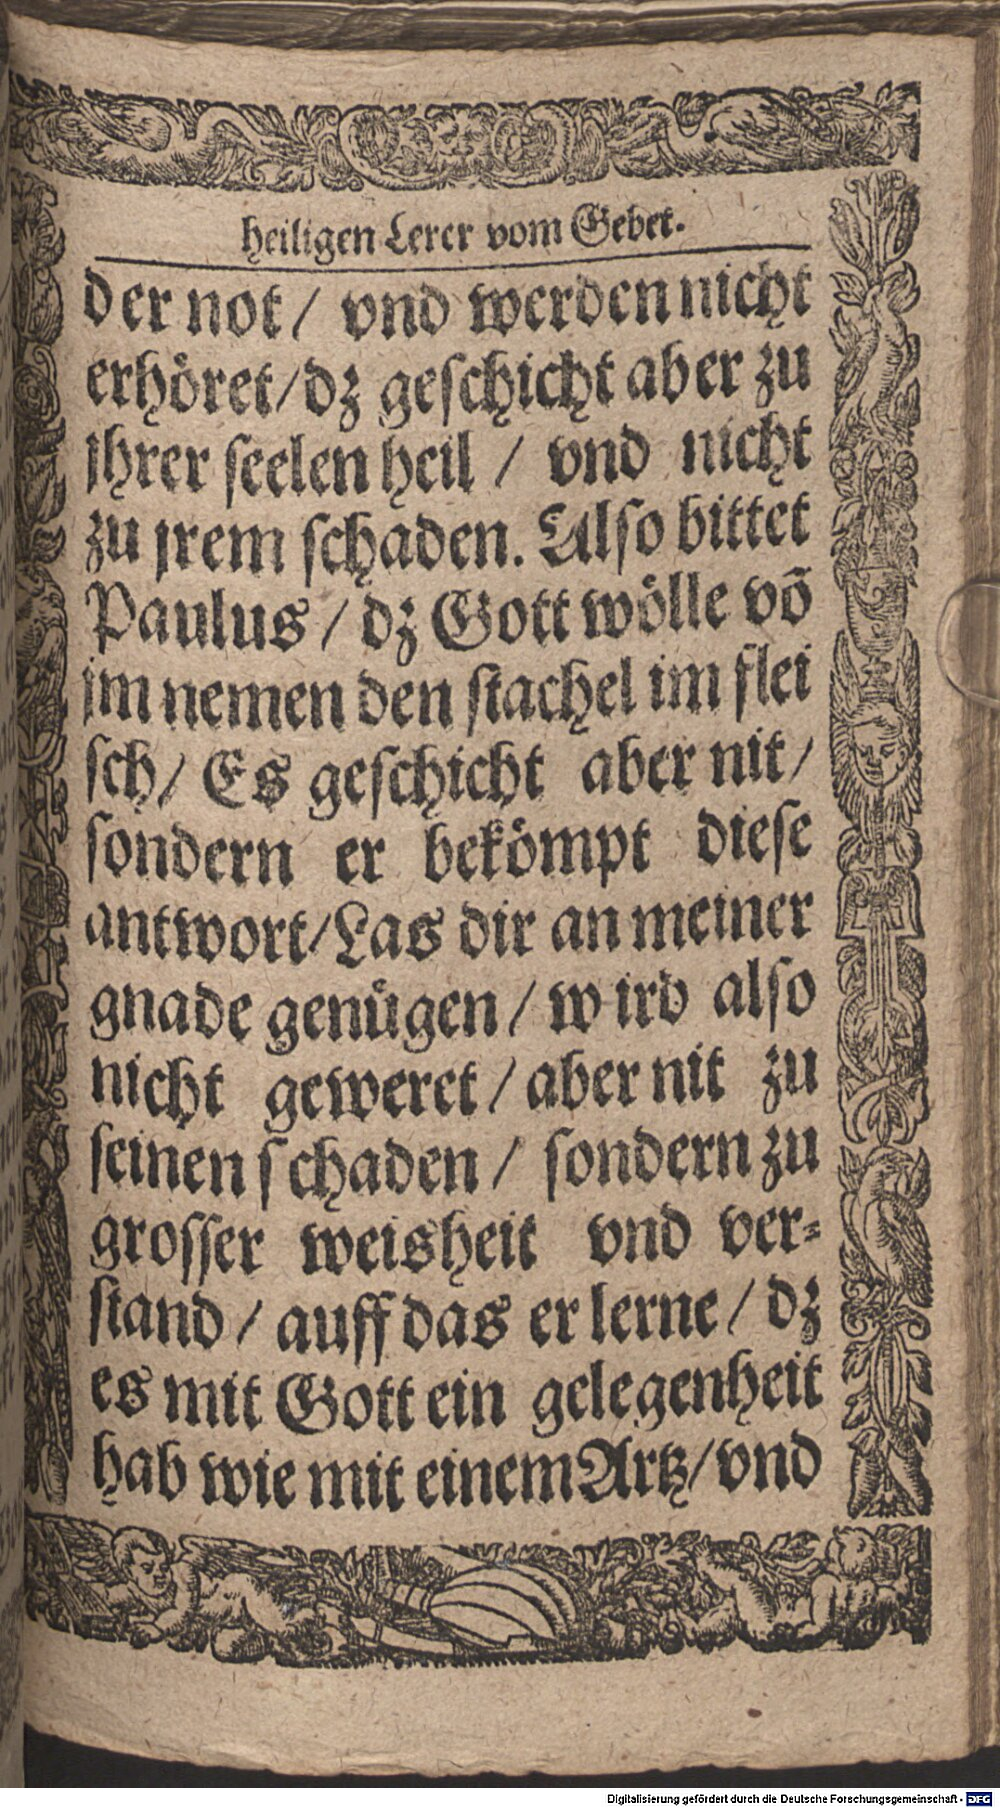 heiligen Lerer vom Gebet.
der not / vnd werden nicht
erhöret / dz geschicht aber zu
jhrer seelen heil / vnd nicht
zu jrem schaden. Also bittet
Paulus / dz Gott wölle võ
jm nemen den stachel im flei
sch / Es geschicht aber nit /
sondern er bekömpt diese
antwort / Las dir an meiner
gnade genügen / wird also
nicht geweret / aber nit zu
seinen schaden / sondern zu
grosser weisheit vnd ver=
stand / auff das er lerne / dz
es mit Gott ein gelegenheit
hab wie mit einem Artz / vnd
Digitalisierung gefördert durch die Deutsche Forschungsgemeinschaft - DFG